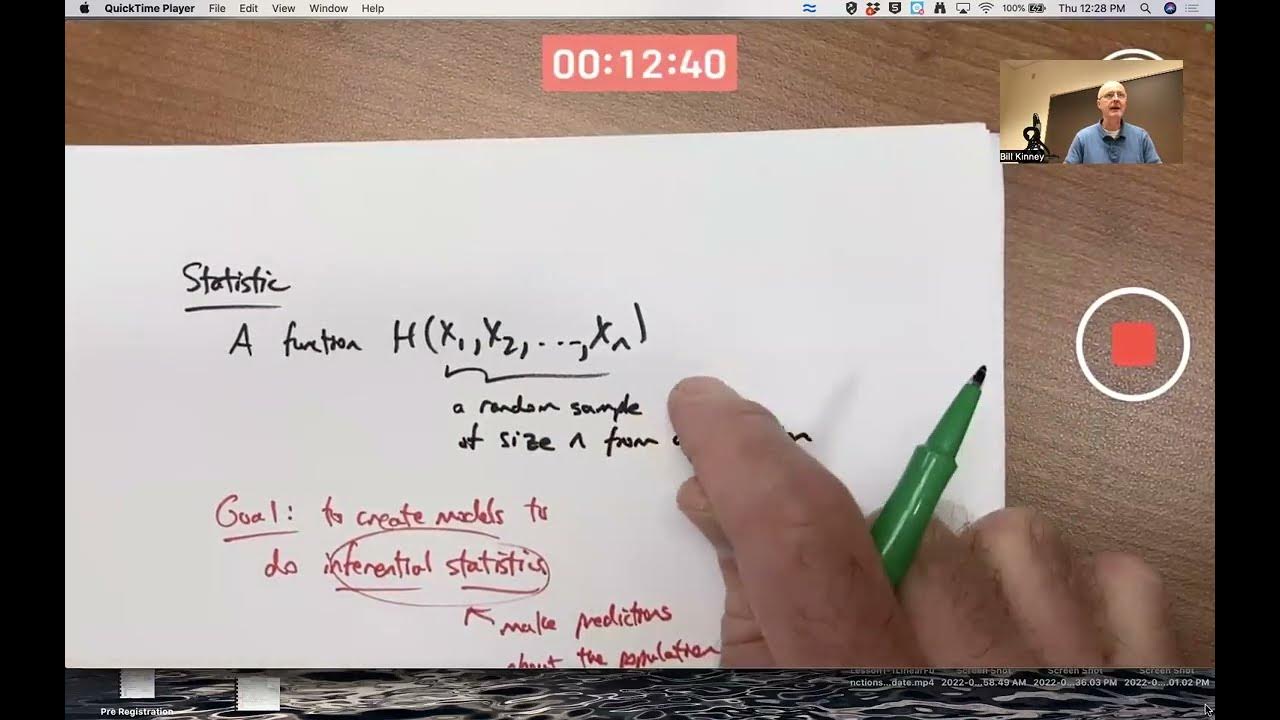 QuickTime Player File Edit View Window Help 100% Thu 12:28 PM
00:12:40
Bill Kinney
Statistic
A function H(X1, X2, ..., Xn)
a random sample
of size n from
Goal: to create models to
do inferential statistics
make predictions
about the population
nctions...date.mp4 2022-0...58.49 AM 2022-0...36.03 PM 2022-0....01.02 PM
Pre Registration